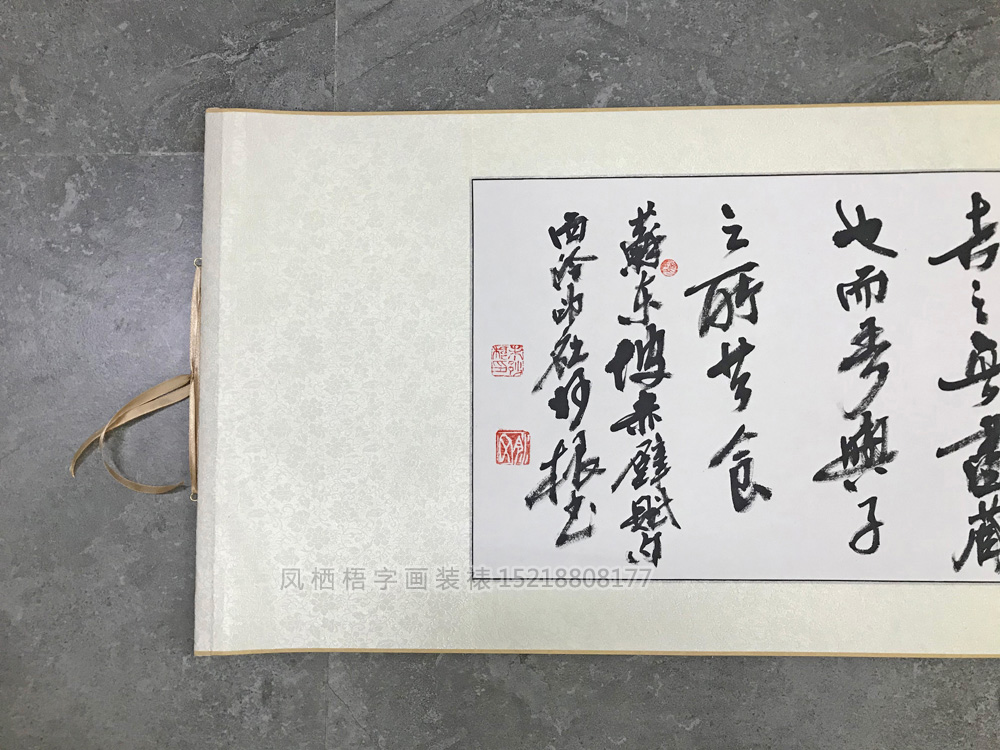 者之無盡藏
也而吾與子
之所共食
蘇东坡赤壁賦句
西泠印社振书
凤栖梧字画装裱-15218808177